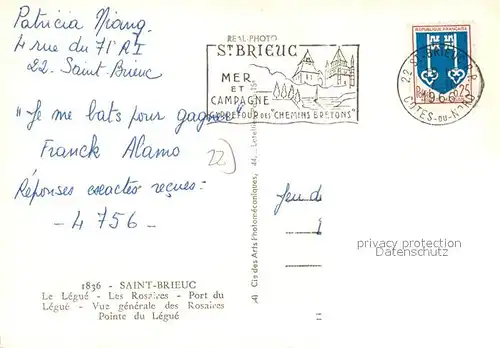 Patricia Niang
4 rue du 71e R I
22. Saint-Brieuc
"Je me bats pour gagner"
Franck Alamo
Réponses exactes reçues :
- 4 756 -
22
REAL-PHOTO
ST BRIEUC
MER
ET
CAMPAGNE
CARREFOUR des "CHEMINS BRETONS"
REPUBLIQUE FRANÇAISE
0,25
22 ST BRIEUC
1966
COTES-DU-NORD
Jeu d
privacy protection
watermark
1836 - SAINT-BRIEUC
Le Légué - Les Rosaires - Port du
Légué - Vue générale des Rosaires
Pointe du Légué
Cie des Arts Photomécaniques, 44,